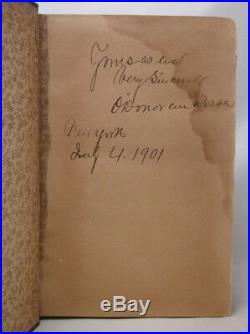 Yours as ever
Very Sincerely
O'Donovan Rossa
New York
July 4. 1901
ebay